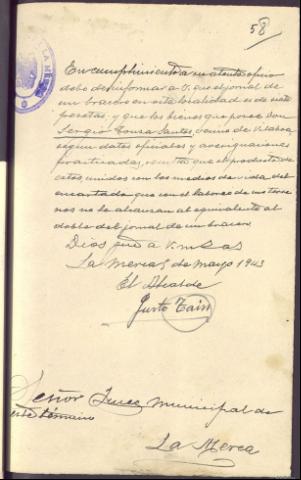 58
LA MERCA
En cumplimiento a su atento oficio
debo de informar a V. que el jornal de
un bracero en esta localidad es de siete
pesetas y que los bienes que posee Don
Sergio Sousa Santos, vecino de
según datos oficiales y averiguaciones
practicadas, resulta que el producto de
estos unidos con los medios de vida del
encartado que son el laboreo de
nos no le alcanzan al equivalente al
doble del jornal de un bracero
Dios gue a V. m
La Merca 5 de Mayo 1943
El Alcalde
Justo
Señor Juez Municipal de
este término
La Merca